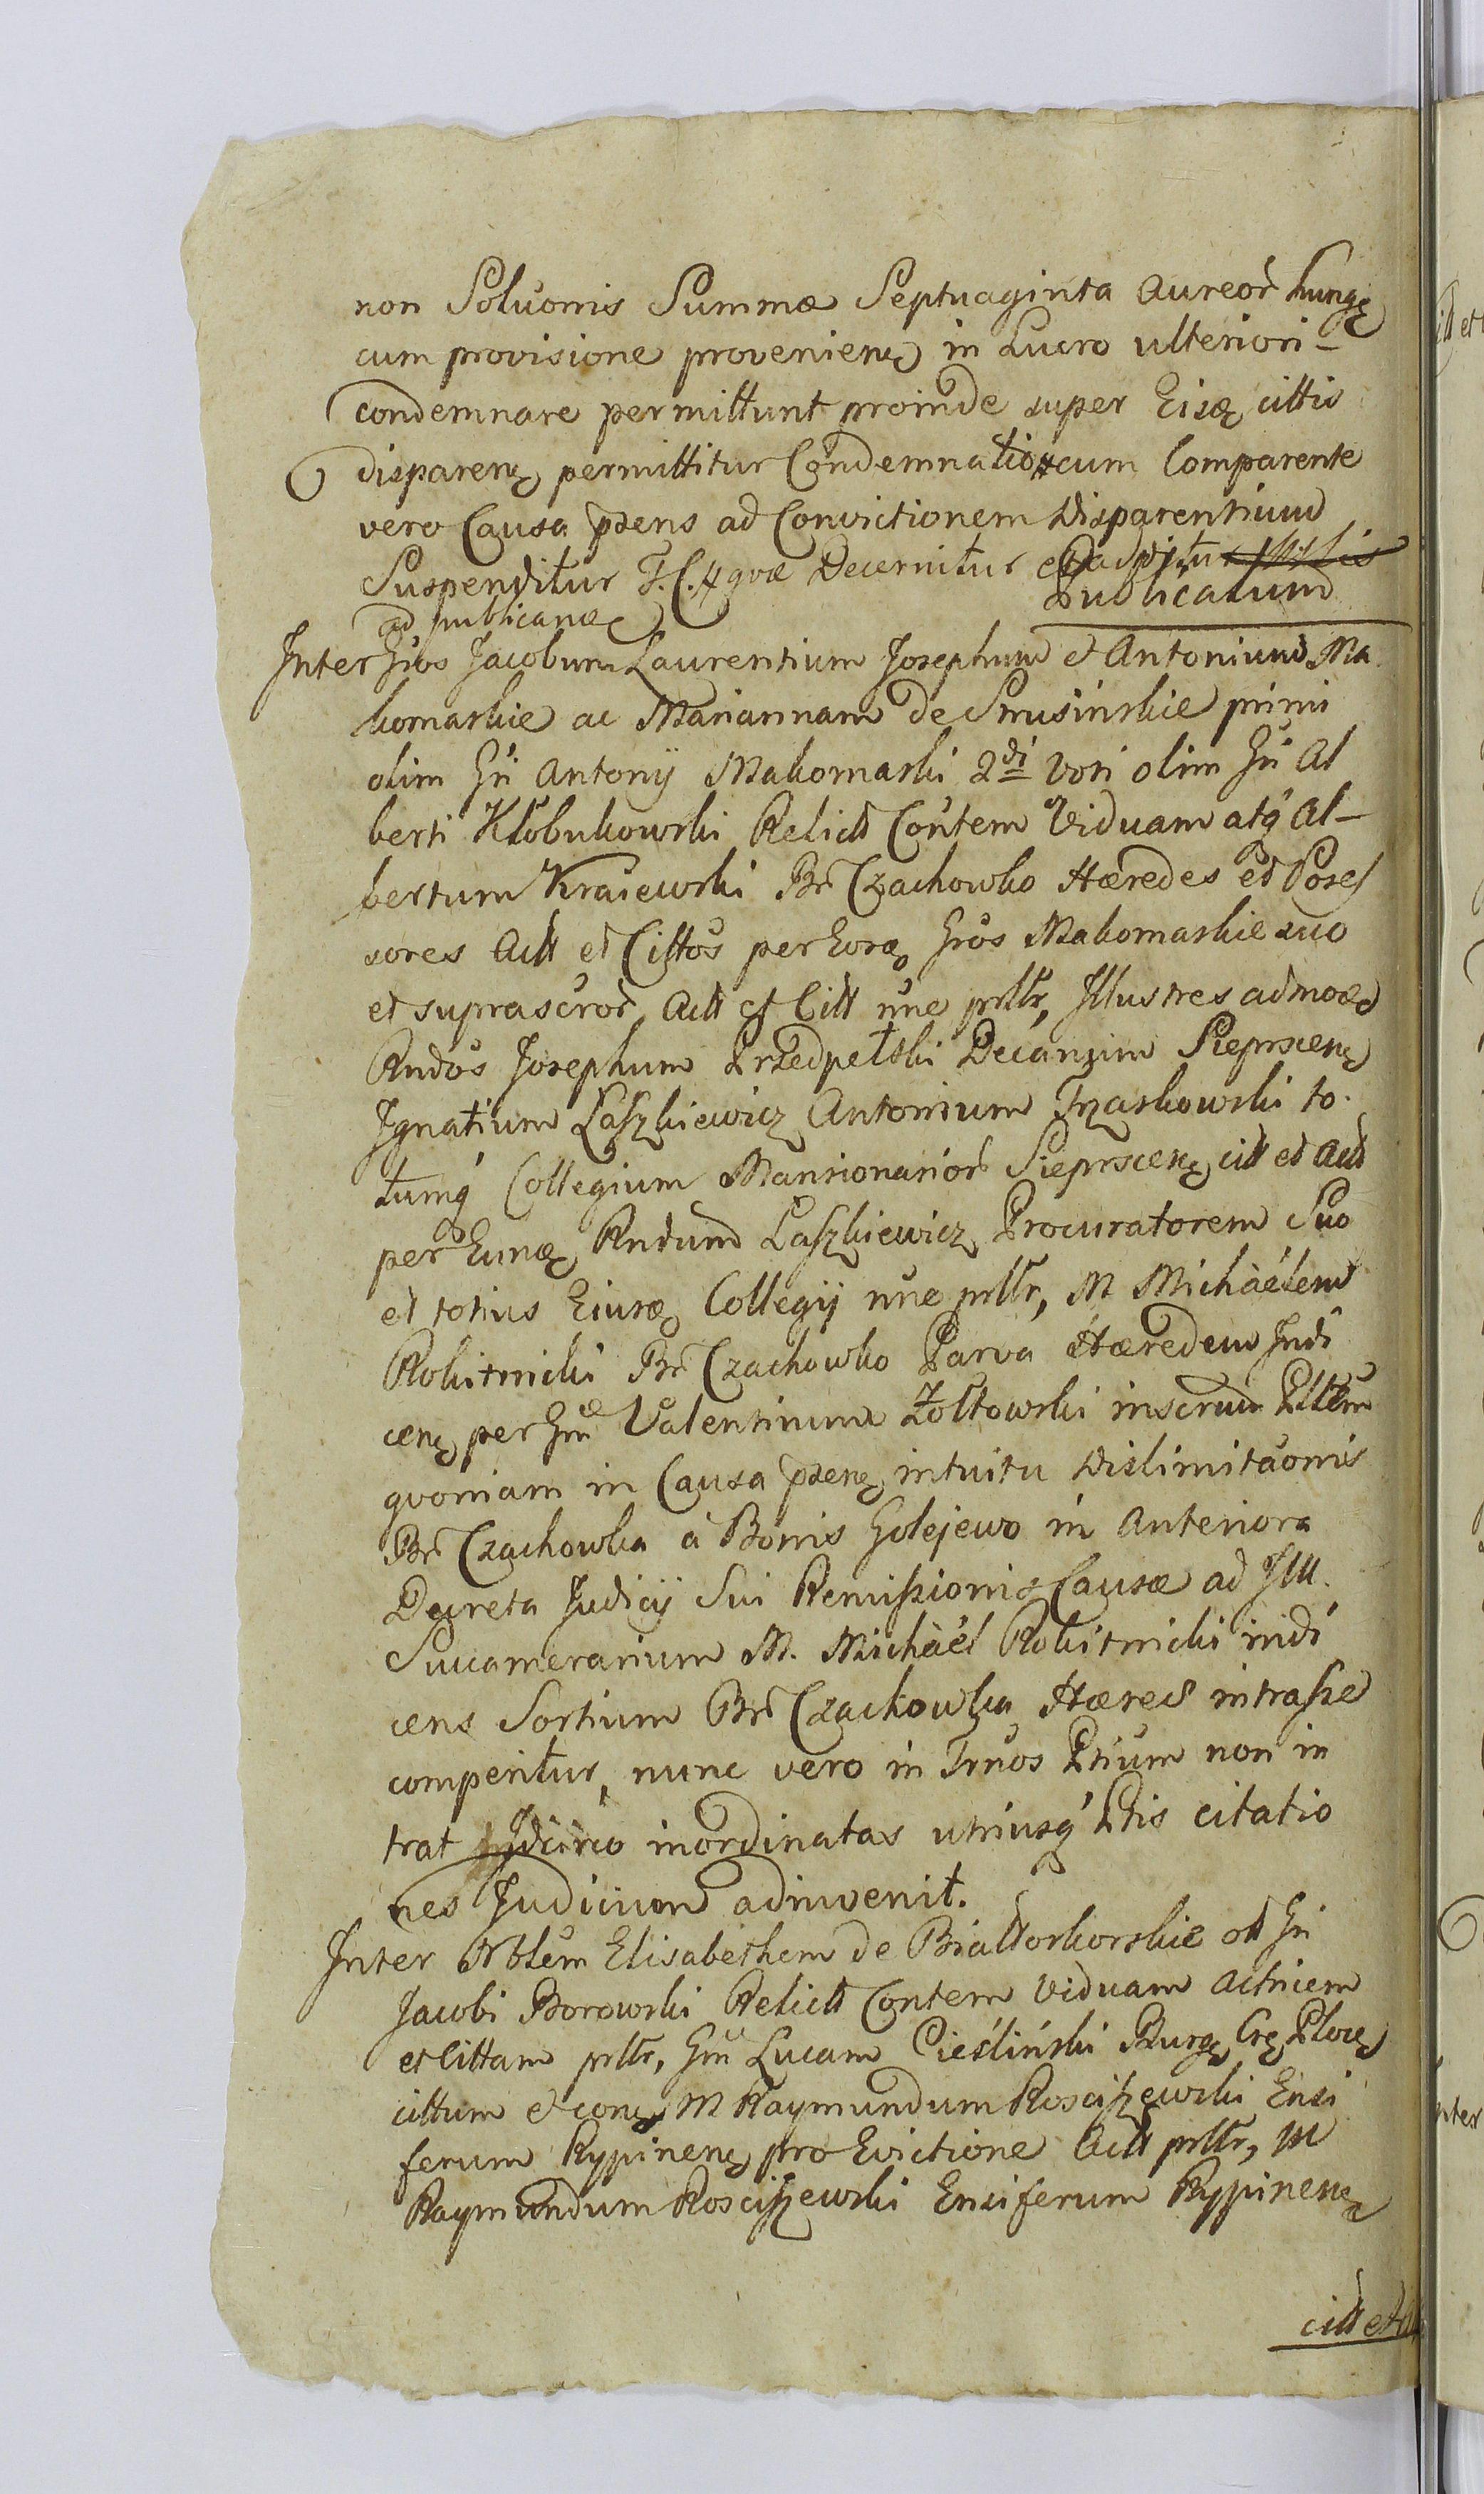 non Soluonis Summæ Septuaginta Aureor̃ hung
cum provisione provenien in Lucro ulteriori–
condemnare permittunt proinde super Eisq cittis
disparen permittitur Condemnatio # cum Comparente
vero Causa pñens ad Convictionem Disparentium
Suspenditur F. C. # quæ Decernitur et additur
ad publican
Publicatum
Inter Gños Jacobum Laurentium Josephum et Antonium Ma
komaskie ac Mariannam de Smusinskie primi
olim Gñi Antonij Makomaski 2di voti olim Gñi Al
berti Kłobukowski Relict Cõntem Viduam atq̃ Al–
bertum Kraiewski Br̃ Czachowko Hæredes et Posses
sores Actt et Cittos per Eosq Gños Makomaskie suo
et suprascror̃ Actt et Citt ñne prlłr, Illustres admod
Rndos Josephum Przedpełski Decanum Sieprscen
Ignatium Laszkiewicz Antonium Trzaskowski to
tumq̃ Collegium Mansionarior̃ Sieprscen citt et Actt
per Eunq Rndum Laszkiewicz Procuratorem Suo
et totius Eiusq Collegij ñne prlłr, M Michäelem
Rokitnicki Br̃ Czachowko Parva Hæredem Indi
cen per Gñu Valentinum Żołtowski inscrum Pltẽm
quoniam in Causa pñen intuitu Dislimitãonis
Br̃ Czachowka à Bonis Golejewo in Anteriora
Decreta Judicij Sui Remissionis Causæ ad Ill.
Succamerarium M. Michäel Rokitnicki indi
cens Sortium Br̃ Czachowka Hæres intrasse
comperitur, nunc vero in Trños Ptium non in
trat Idcirco inordinatas utriusq̃ Ptis citatio
nes Judicium adinvenit.
Inter Nblem Elisabethem de Białłoskorskie olt Gñi
Jacobi Borowski Relict Cõntem Viduam Actricem
et Cittam prlłr, Gñu Lucam Cieśliński Burg Crę Ploc
cittum et con M Raymundum Rosciszewski Ensi
ferum Rypinen pro Evictione Actt prlłr, M
Raymundum Rosciszewski Ensiferum Rypinen
citt et